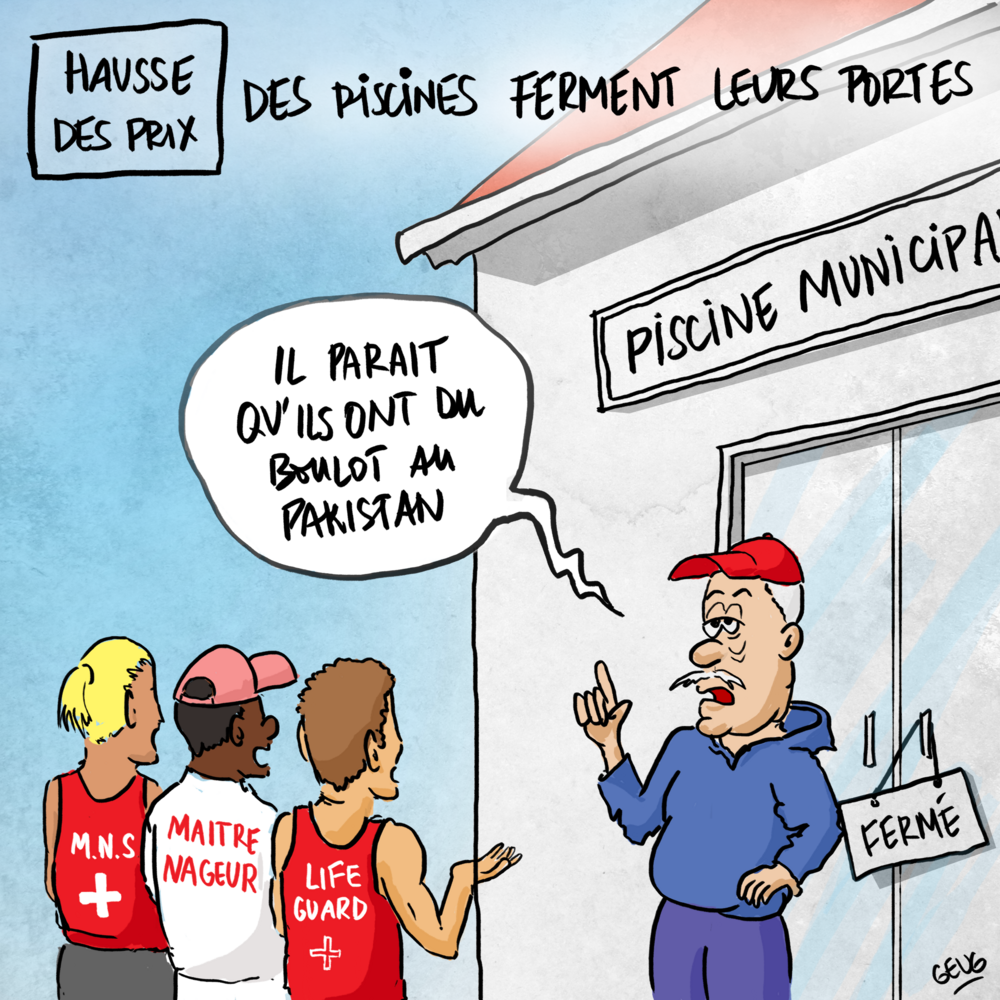 HAUSSE
DES PRIX
DES PISCINES FERMENT LEURS PORTES
PISCINE MUNICIPA
IL PARAIT
QU'ILS ONT DU
BOULOT AU
PAKISTAN
M.N.S
MAITRE
NAGEUR
LIFE
GUARD
FERMÉ
GEUG